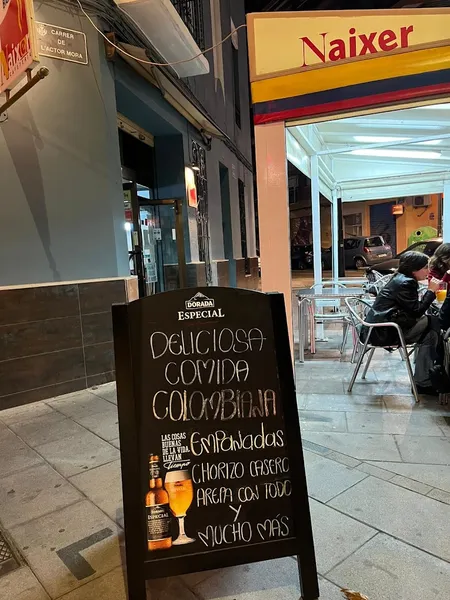 Naixer
CARRER
DE
L'ACTOR MORA
Naixer
DORADA
ESPECIAL
DELICIOSA
COMIDA
COLOMBIANA
LAS COSAS
BUENAS DE
LA VIDA
LLEVAN
Tiempo
EMPANADAS
CHORIZO CASERO
AREPA CON TODO
Y
MUCHO MÁS
ESPECIAL